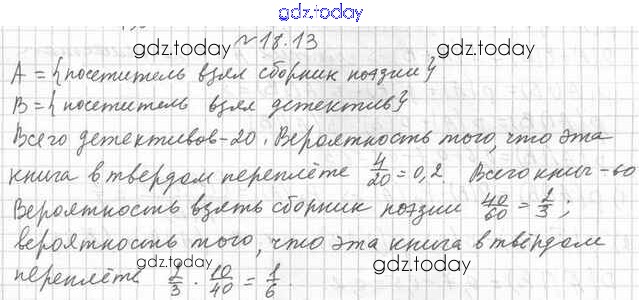 gdz.today
№18.13
gdz.today
gdz.today
A = {посетитель взял сборник поэзии}
B = {посетитель взял детектив}
Всего детективов-20. Вероятность того, что эта
книга в твердом переплёте 4/20 = 0,2. Всего книг-60
Вероятность взять сборник поэзии 40/60 = 2/3;
gdz.today
gdz.today
вероятность того, что эта книга в твёрдом
переплёте 2/3 · 10/40 = 1/6.
gdz.today
gdz.today